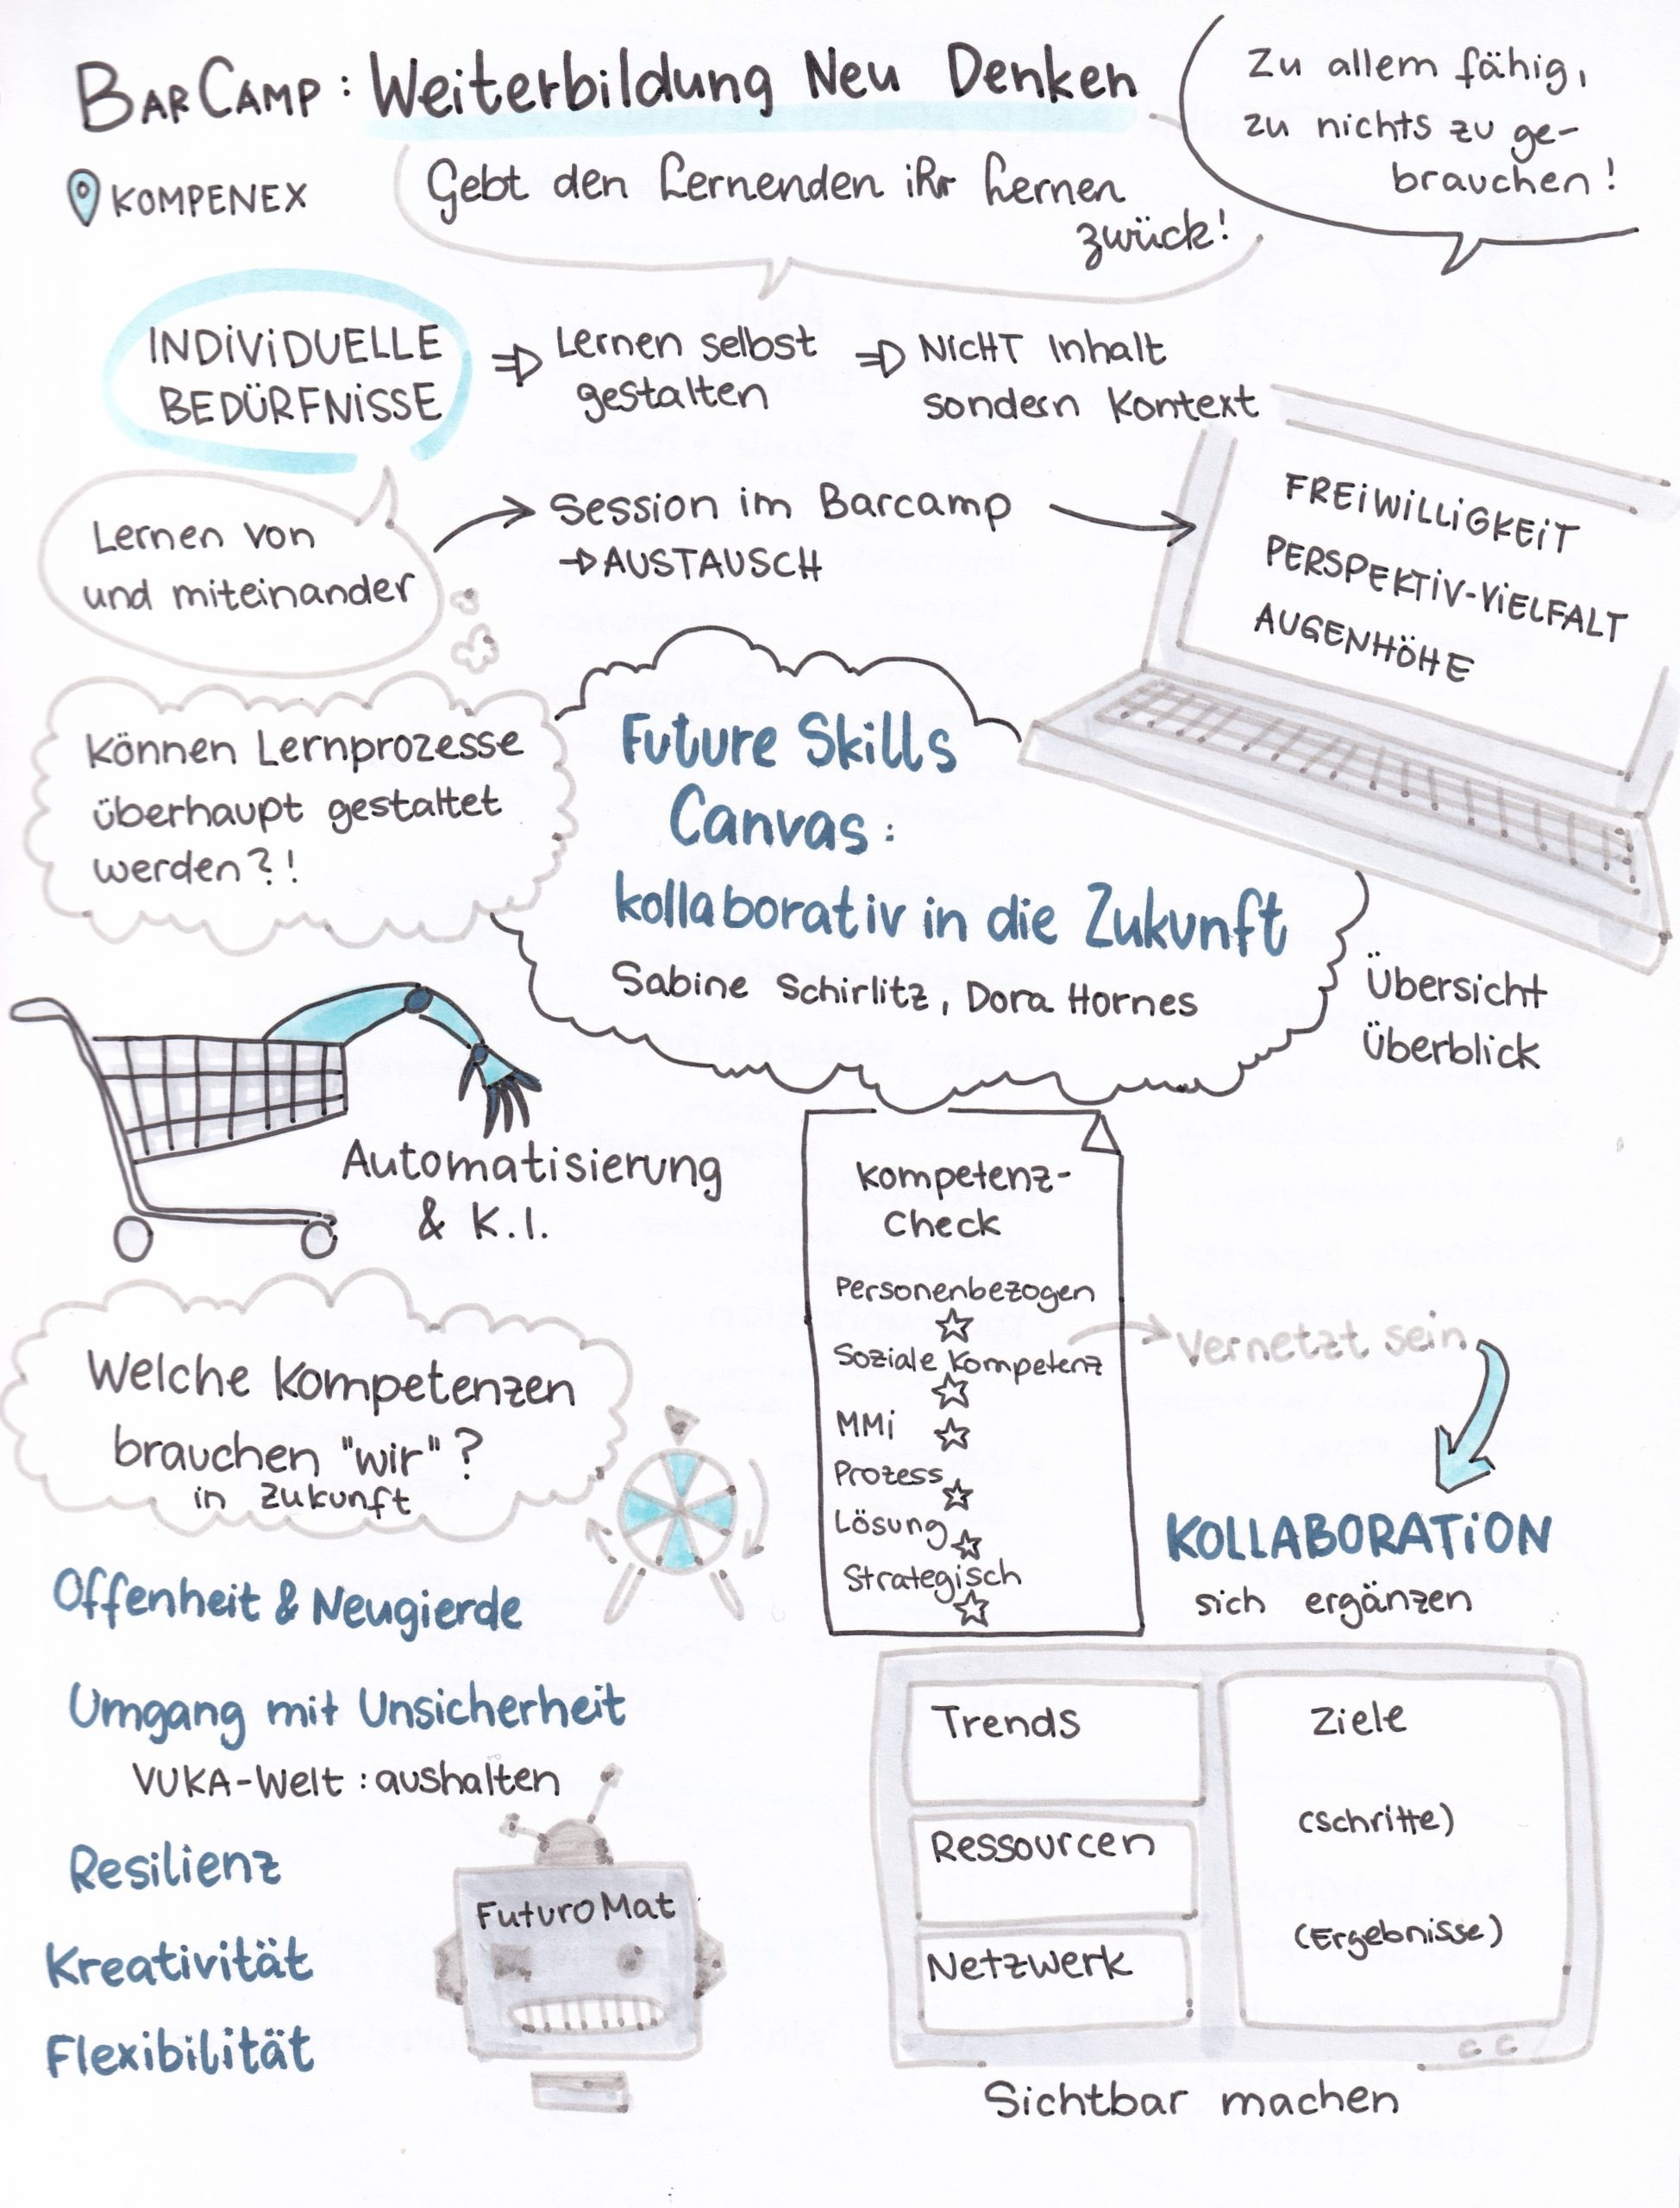 BARCAMP: Weiterbildung Neu Denken
KOMPENEX
Gebt den Lernenden ihr Lernen
zurück!
Zu allem fähig,
zu nichts zu ge-
brauchen!
INDIVIDUELLE
BEDÜRFNISSE
⇒ Lernen selbst
gestalten
⇒ NICHT Inhalt
sondern Kontext
Lernen von
und miteinander
→ Session im Barcamp
→ AUSTAUSCH
FREIWILLIGKEIT
PERSPEKTIV-VIELFALT
AUGENHÖHE
Können Lernprozesse
überhaupt gestaltet
werden?!
Future Skills
Canvas:
kollaborativ in die Zukunft
Sabine Schirlitz, Dora Hornes
Übersicht
Überblick
Automatisierung
& K.I.
Kompetenz-
Check
Personenbezogen
Soziale Kompetenz
MMi
Prozess
Lösung
Strategisch
Vernetzt sein
KOLLABORATION
sich ergänzen
Welche Kompetenzen
brauchen "wir"?
in Zukunft
Offenheit & Neugierde
Umgang mit Unsicherheit
VUKA-Welt: aushalten
Resilienz
Kreativität
Flexibilität
FuturoMat
Trends
Ressourcen
Netzwerk
Ziele
(schritte)
(Ergebnisse)
Sichtbar machen